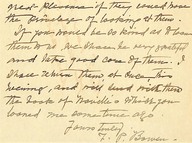 great pleasure if they could have
the privilege of looking at them.
If you would be so kind as to loan
them to us we shall be very grateful
and take good care of them. I
shall return them, at once, this
evening, and will send with them
the book of Novello's which you
loaned me some time ago.
Yours truly,
F. P. Bowen